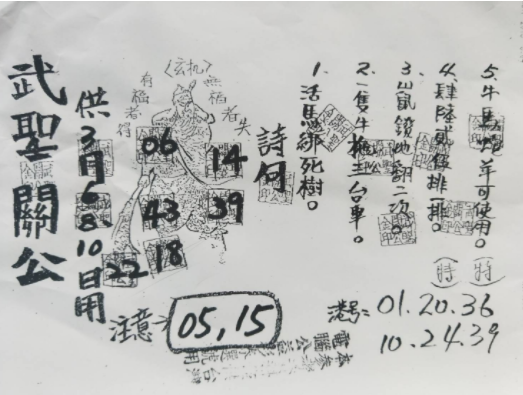 武聖關公
供3月6 8 10日用
〈玄机〉
有福者得
無福者失
06
14
43
39
18
22
詩句
1. 活馬綁死樹。
2. 一隻牛拖三台車。
3. 出鼠鏡地翻二次。
4. 肆陸貳組排一排。
5. 牛馬羊可使用。
(特)
(特)
注意
05,15
港号:
01.20.36
10.24.39